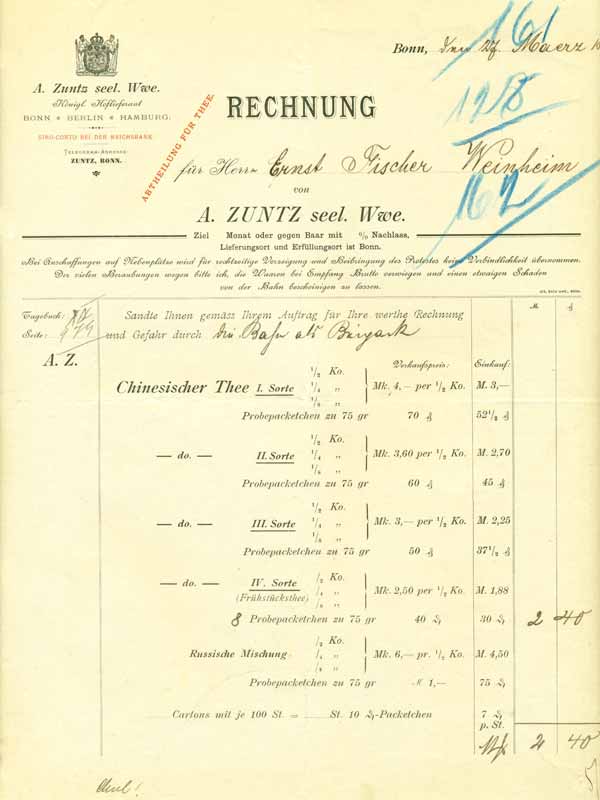 161
Bonn, den 27 Maerz
A. Zuntz seel. Wwe.
Königl. Hoflieferant
BONN * BERLIN * HAMBURG.
GIRO-CONTO BEI DER REICHSBANK
TELEGRAMM-ADRESSE:
ZUNTZ, BONN.
ABTHEILUNG FÜR THEE.
RECHNUNG
128
für Herrn Ernst Fischer Weinheim
von
162
A. ZUNTZ seel. Wwe.
Ziel Monat oder gegen Baar mit % Nachlass,
Lieferungsort und Erfüllungsort ist Bonn.
Bei Anschaffungen auf Nebenplätze wird für rechtzeitige Vorzeigung und Beibringung des Protestes keine Verbindlichkeit übernommen.
Der vielen Beraubungen wegen bitte ich, die Waaren bei Empfang Brutto verwiegen und einen etwaigen Schaden
von der Bahn bescheinigen zu lassen.
M. ₰
Tagebuch: Sandte Ihnen gemäss Ihrem Auftrag für Ihre werthe Rechnung
Seite: 579 und Gefahr durch die Bahn als
A. Z.
Verkaufspreis: Einkauf:
1/2 Ko.
Chinesischer Thee I. Sorte 1/4 „ Mk. 4,— per 1/2 Ko. M. 3,—
1/8 „
Probepacketchen zu 75 gr 70 ₰ 52 1/2 ₰
1/2 Ko.
— do. — II. Sorte 1/4 „ Mk. 3,60 per 1/2 Ko. M. 2,70
1/8 „
Probepacketchen zu 75 gr 60 ₰ 45 ₰
1/2 Ko.
— do. — III. Sorte 1/4 „ Mk. 3,— per 1/2 Ko. M. 2,25
1/8 „
Probepacketchen zu 75 gr 50 ₰ 37 1/2 ₰
1/2 Ko.
— do. — IV. Sorte 1/4 „ Mk. 2,50 per 1/2 Ko. M. 1,88
(Frühstücksthee) 1/8 „
8 Probepacketchen zu 75 gr 40 ₰ 30 ₰ 2 40
1/2 Ko.
Russische Mischung 1/4 „ Mk. 6,— pr. 1/2 Ko. M. 4,50
1/8 „
Probepacketchen zu 75 gr M 1,— 75 ₰
Cartons mit je 100 St. = St. 10 ₰-Packetchen 7 ₰
p. St.
Mk 2 40